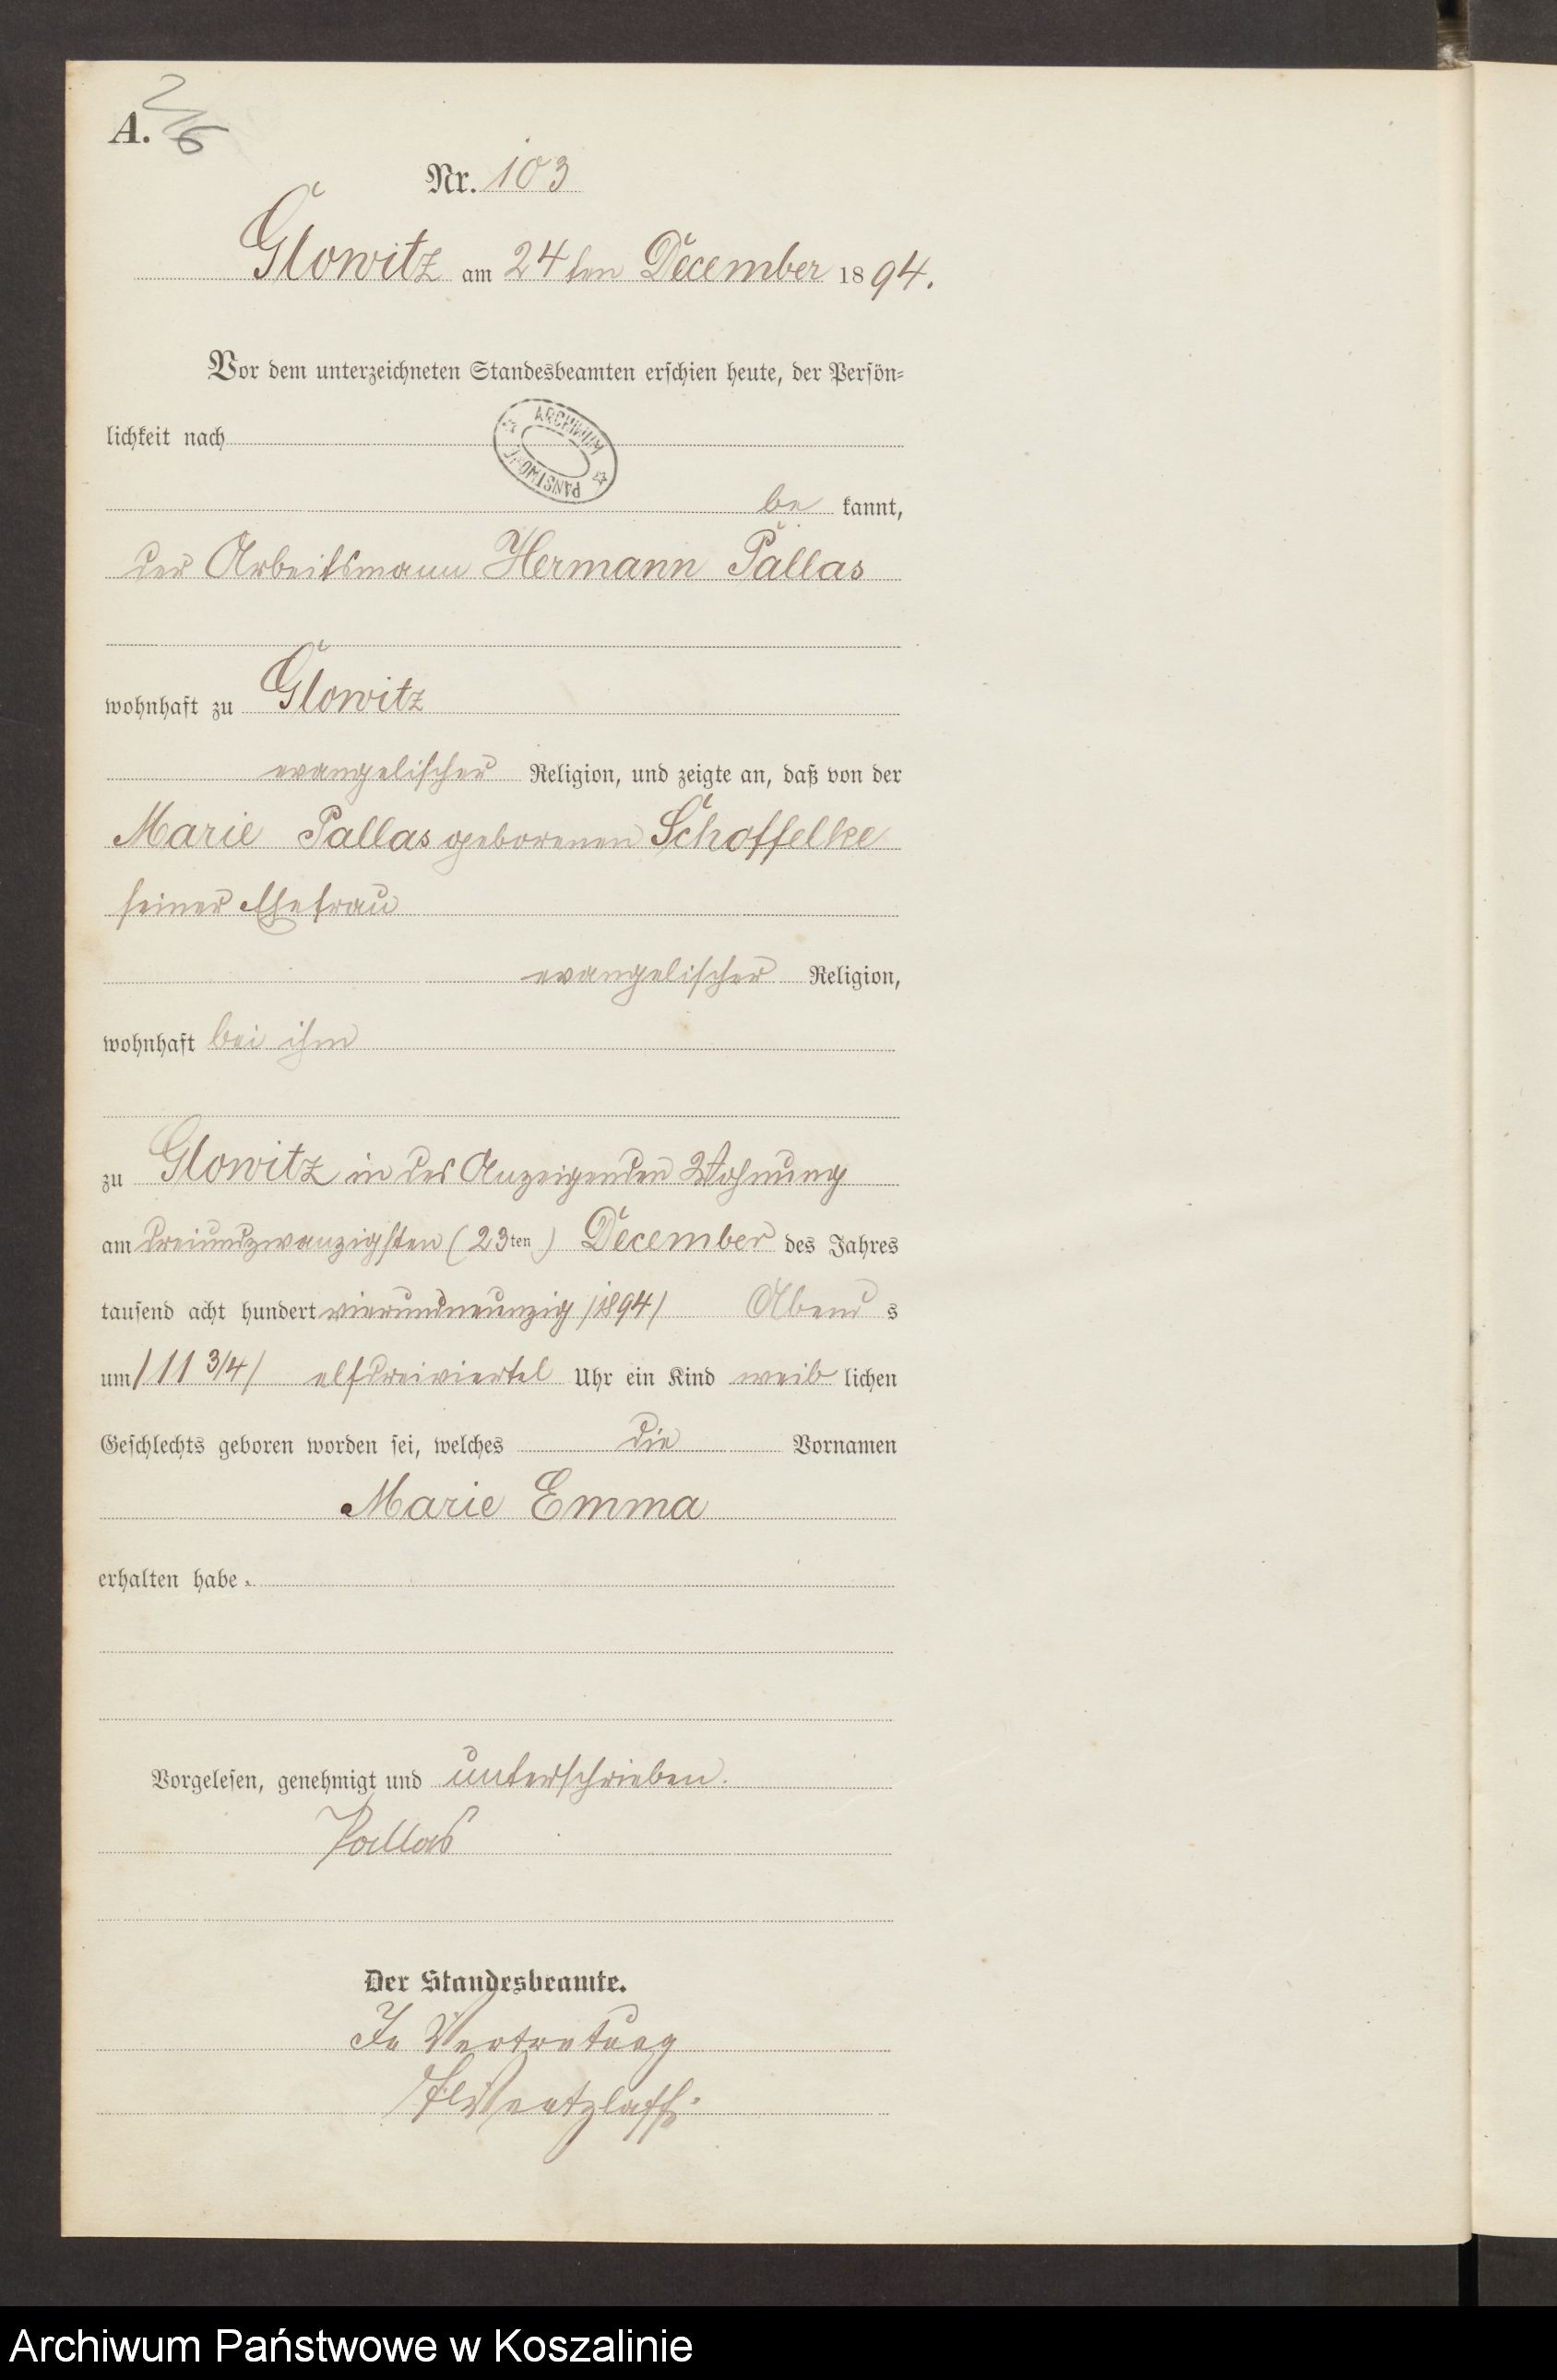 A.
Nr. 103
Glowitz am 24ten December 1894.
Vor dem unterzeichneten Standesbeamten erschien heute, der Persön-
lichkeit nach
ARCHIWUM
PAŃSTWOWE
be kannt,
der Arbeitsmann Hermann Pallas
wohnhaft zu Glowitz
evangelischer Religion, und zeigte an, daß von der
Marie Pallas geborenen Schoffelke
seiner Ehefrau
evangelischer Religion,
wohnhaft bei ihm
zu Glowitz in des Anzeigenden Wohnung
am dreiundzwanzigsten (23ten) December des Jahres
tausend acht hundert vierundneunzig /1894/ Abend s
um /11 3/4/ elfdreiviertel Uhr ein Kind weib lichen
Geschlechts geboren worden sei, welches die Vornamen
Marie Emma
erhalten habe.
Vorgelesen, genehmigt und unterschrieben.
Pallas
Der Standesbeamte.
In Vertretung
Archiwum Państwowe w Koszalinie